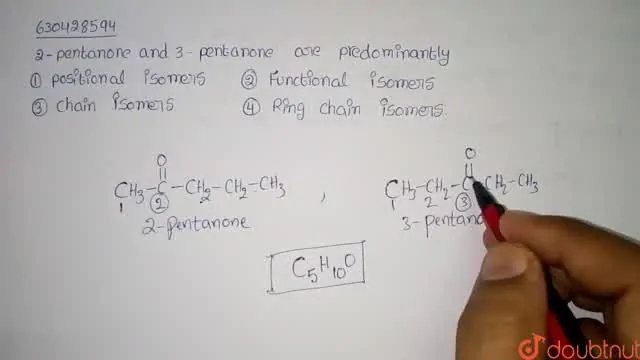 630428594
2-pentanone and 3-pentanone are predominantly
① positional isomers ② Functional isomers
③ chain isomers ④ Ring chain isomers
O O
CH3-C-CH2-CH2-CH3 , CH3-CH2-C-CH2-CH3
1 ② 1 2 ③
2-pentanone 3-pentano
C5H10O
doubtnut